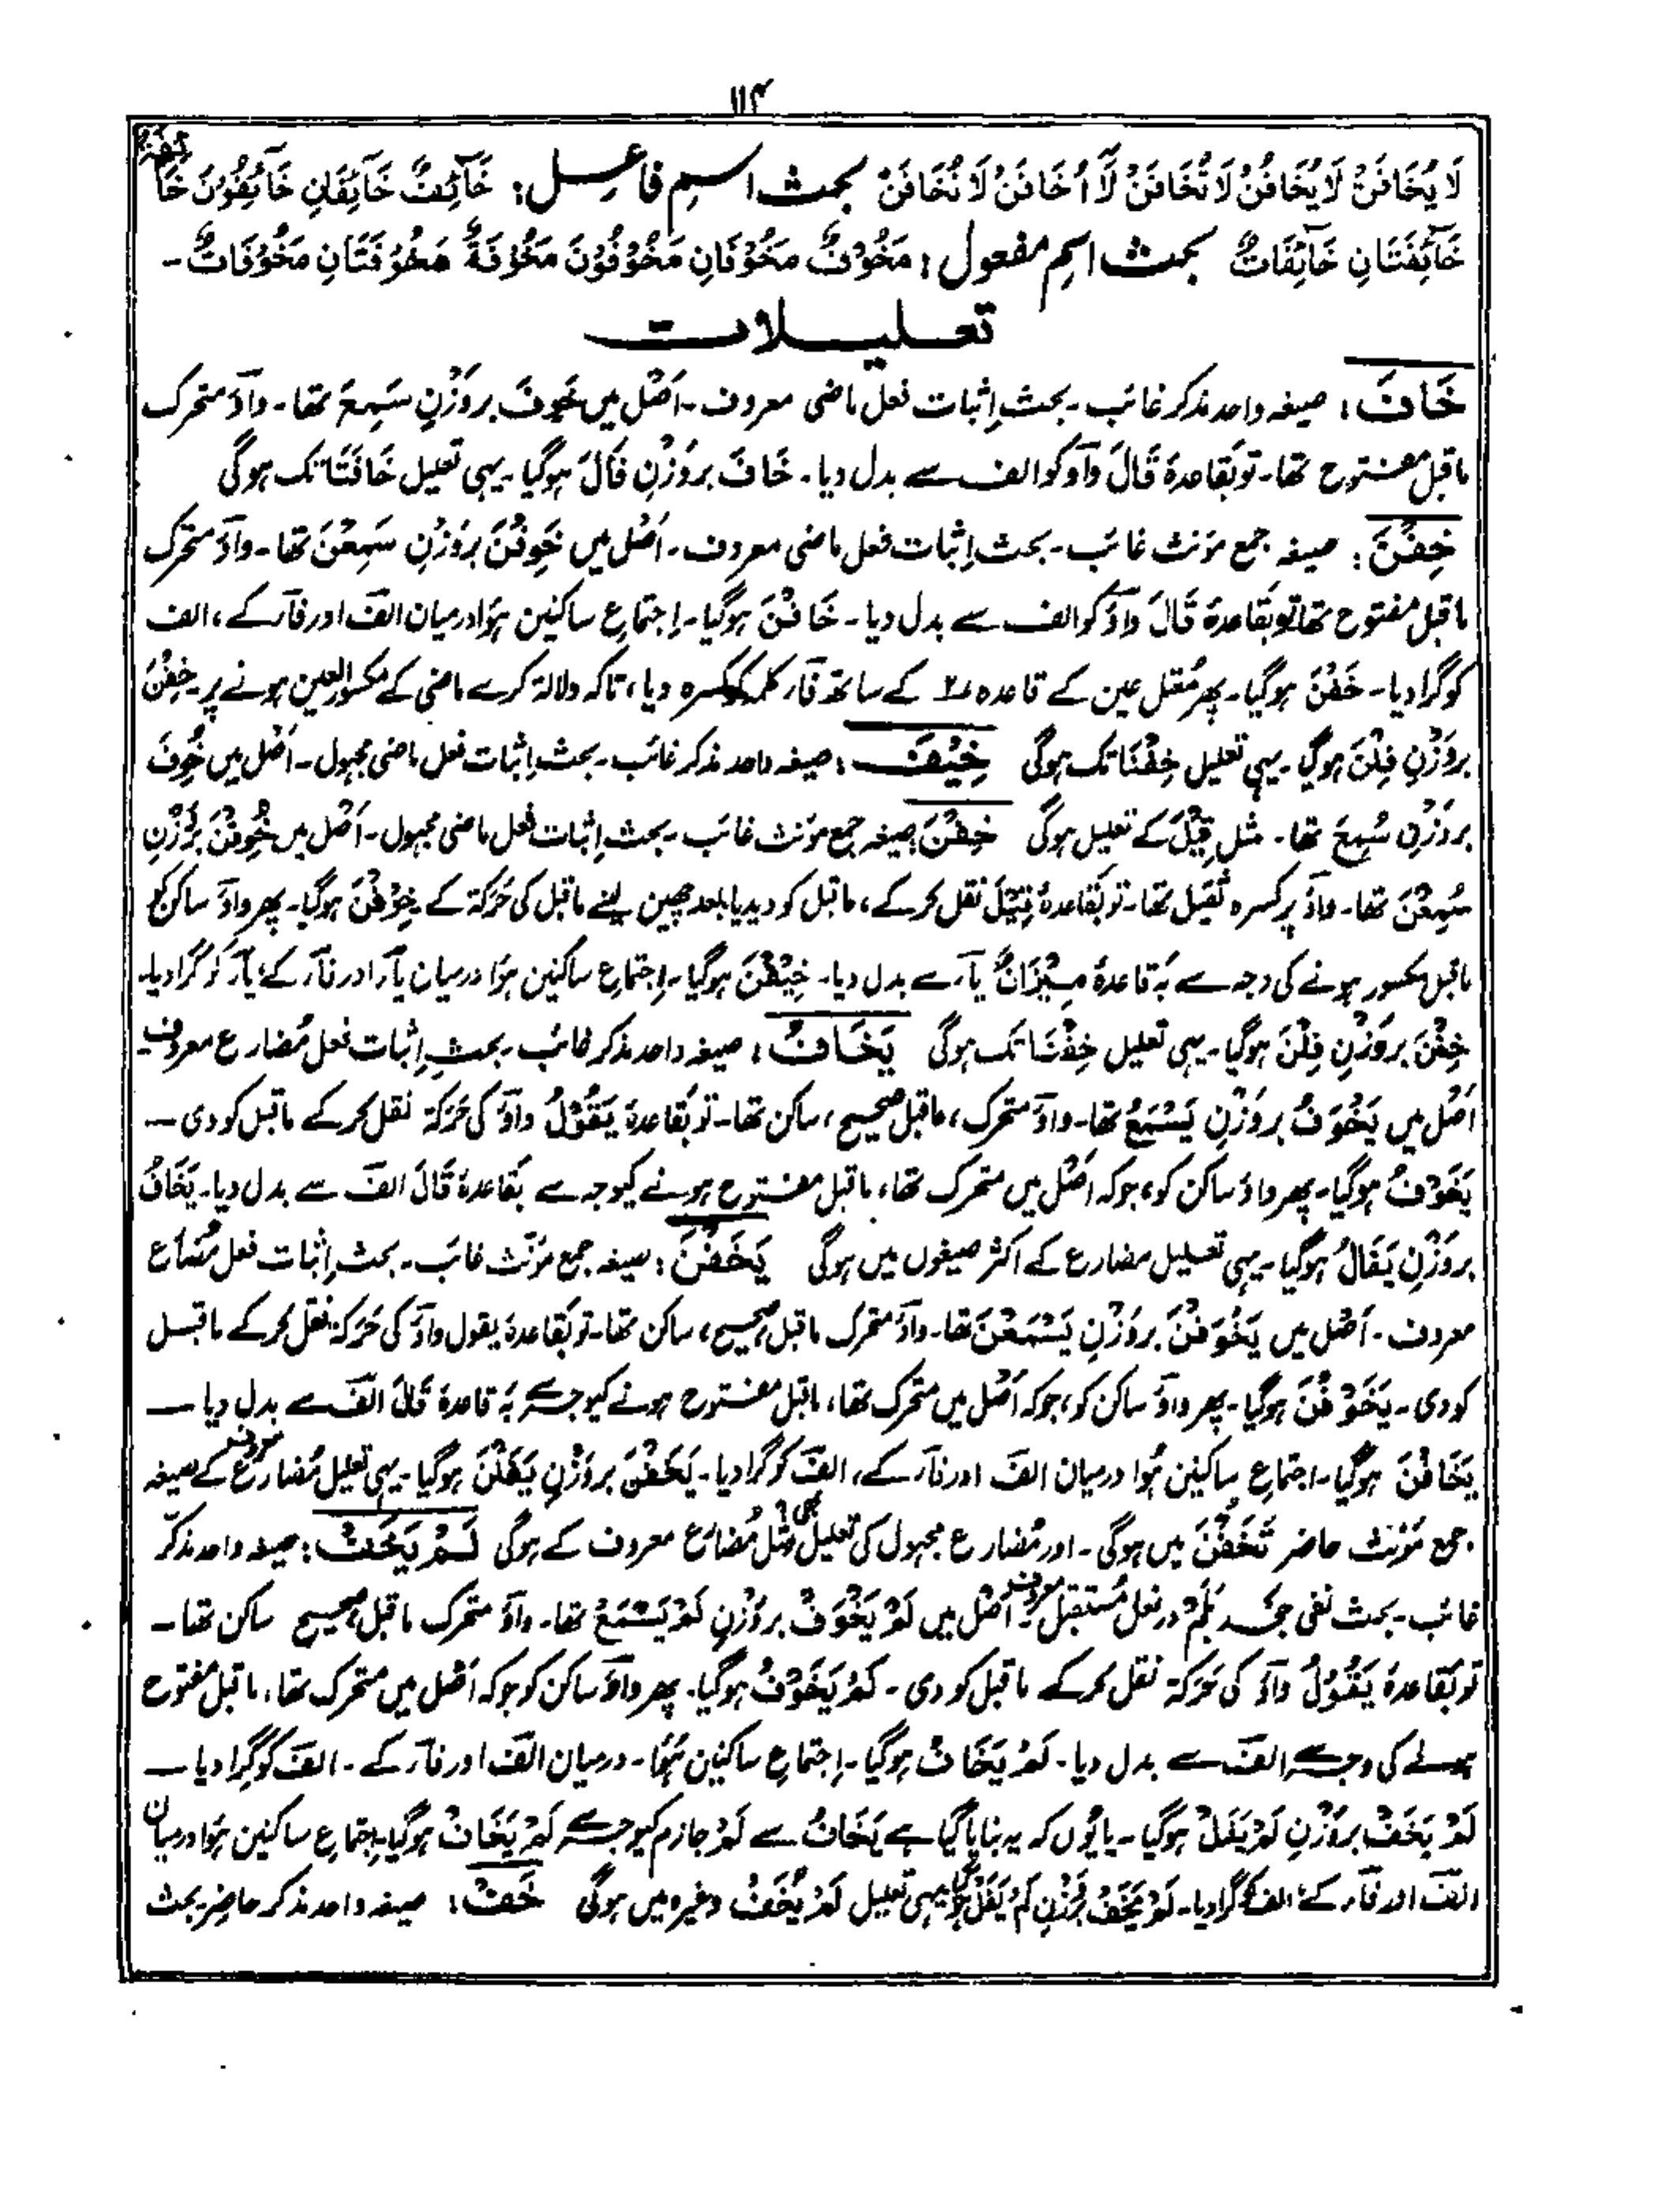 ۱۱۴
لَا يُخَافَنْ لَا يُخَافُنْ لَا تُخَافَنْ لَا اُخَافَنْ لَا نُخَافَنْ بحث اسمِ فاعِل: خَآئِفٌ خَآئِفَانِ خَآئِفُوْنَ خَآئِفَةٌ
خَآئِفَتَانِ خَآئِفَاتٌ بحث اسمِ مفعول: مَخُوْفٌ مَخُوْفَانِ مَخُوْفُوْنَ مَخُوْفَةٌ مَخُوْفَتَانِ مَخُوْفَاتٌ۔
تعلیلات
خَافَ: صیغہ واحد مذکر غائب۔ بحث اِثبات فعل ماضی معروف۔ اَصْل میں خَوِفَ بروَزْنِ سَمِعَ تھا۔ واؤ متحرک
ماقبل مفتوح تھا۔ تو بقاعدۂ قَالَ واؤ کو الف سے بدل دیا۔ خَافَ بروَزْنِ فَالَ ہوگیا۔ یہی تعلیل خَافَتَا تک ہوگی
خِفْنَ: صیغہ جمع مؤنث غائب۔ بحث اِثبات فعل ماضی معروف۔ اَصْل میں خَوِفْنَ بروَزْنِ سَمِعْنَ تھا۔ واؤ متحرک
ماقبل مفتوح تھا تو بقاعدۂ قَالَ واؤ کو الف سے بدل دیا۔ خَافْنَ ہوگیا۔ اِجتماعِ ساکنین ہوَا درمیان الف اور فآر کے، الف
کو گرا دیا۔ خَفْنَ ہوگیا۔ پھر مُعتل عین کے قاعدہ ۲ کے ساتھ فآر کلمہ کو کسرہ دیا، تاکہ دلالۃ کرے ماضی کے مکسور العین ہونے پر۔ خِفْنَ
بروَزْنِ فِلْنَ ہوگیا۔ یہی تعلیل خِفْنَا تک ہوگی خِيْفَ: صیغہ واحد مذکر غائب۔ بحث اِثبات فعل ماضی مجہول۔ اَصْل میں خُوِفَ
بروَزْنِ سُمِعَ تھا۔ مثل قِيْلَ کے تعلیل ہوگی خِفْنَ: صیغہ جمع مؤنث غائب۔ بحث اِثبات فعل ماضی مجہول۔ اَصْل میں خُوِفْنَ بروَزْنِ
سُمِعْنَ تھا۔ واؤ پر کسرہ ثقیل تھا۔ تو بقاعدۂ قِيْلَ نقل کر کے، ماقبل کو دیدیا بعد چھین لینے ماقبل کی حَرکۃ کے خِوْفْنَ ہوگیا۔ پھر واؤ ساکن کو
ماقبل مکسور ہونے کی وجہ سے بہ قاعدۂ مِيْزَانٌ یآر سے بدل دیا۔ خِيْفْنَ ہوگیا۔ اِجتماعِ ساکنین ہوَا درمیان یآر اور فآر کے، یآر کو گرا دیا۔
خِفْنَ بروَزْنِ فِلْنَ ہوگیا۔ یہی تعلیل خِفْنَا تک ہوگی يَخَافُ: صیغہ واحد مذکر غائب۔ بحثِ اِثبات فعل مُضارع معروف۔
اَصْل میں يَخْوَفُ بروَزْنِ يَسْمَعُ تھا۔ واؤ متحرک، ماقبل صحیح، ساکن تھا۔ تو بقاعدۂ يَقُوْلُ واؤ کی حَرکۃ نقل کر کے ماقبل کو دی۔
يَخَوْفُ ہوگیا۔ پھر واؤ ساکن کو، جو کہ اَصْل میں متحرک تھا، ماقبل مفتوح ہونے کیوجہ سے بقاعدۂ قَالَ الف سے بدل دیا۔ يَخَافُ
بروَزْنِ يَفَالُ ہوگیا۔ یہی تعلیل مضارع کے اکثر صیغوں میں ہوگی يَخَفْنَ: صیغہ جمع مؤنث غائب۔ بحث اِثبات فعل مُضارع
معروف۔ اَصْل میں يَخْوَفْنَ بروَزْنِ يَسْمَعْنَ تھا۔ واؤ متحرک ماقبل صحیح، ساکن تھا۔ تو بقاعدۂ یقول واؤ کی حَرکۃ نقل کر کے ماقبل
کو دی۔ يَخَوْفْنَ ہوگیا۔ پھر واؤ ساکن کو، جو کہ اَصْل میں متحرک تھا، ماقبل مفتوح ہونے کیوجہ سے بہ قاعدۂ قَالَ الف سے بدل دیا۔
يَخَافْنَ ہوگیا۔ اجتماعِ ساکنین ہُوا درمیان الف اور فآر کے، الف کو گرا دیا۔ يَخَفْنَ بروَزْنِ يَفَلْنَ ہوگیا۔ یہی تعلیل مُضارع معروف کے صیغہ
جمع مؤنث حاضر تَخَفْنَ میں ہوگی۔ اور مُضارع مجہول کی تعلیل بھی مثل مُضارع معروف کے ہوگی لَمْ يَخَفْ: صیغہ واحد مذکر
غائب۔ بحث نفی جحد بَلَمْ در فعل مُستقبل معروف۔ اَصْل میں لَمْ يَخْوَفْ بروَزْنِ لَمْ يَسْمَعْ تھا۔ واؤ متحرک ماقبل صحیح ساکن تھا۔
تو بقاعدۂ يَقُوْلُ واؤ کی حَرکۃ نقل کر کے ماقبل کو دی۔ لَمْ يَخَوْفْ ہوگیا۔ پھر واؤ ساکن کو جو کہ اَصْل میں متحرک تھا، ماقبل مفتوح
ہونے کی وجہ سے الف سے بدل دیا۔ لَمْ يَخَافْ ہوگیا۔ اِجتماعِ ساکنین ہُوا۔ درمیان الف اور فآر کے۔ الف کو گرا دیا۔
لَمْ يَخَفْ بروَزْنِ لَمْ يَفَلْ ہوگیا۔ یا یُوں کہ یہ بنایا گیا ہے يَخَافُ سے لَمْ جازم کیوجہ سے لَمْ يَخَافْ ہوگیا۔ اِجتماعِ ساکنین ہوَا درمیان
الف اور فآر کے، الف کو گرا دیا۔ لَمْ يَخَفْ بروَزْنِ لَمْ يَفَلْ ہوگیا یہی تعلیل لَمْ يُخَفْ وغیرہ میں ہوگی خَفْ: صیغہ واحد مذکر حاضر۔ بحث